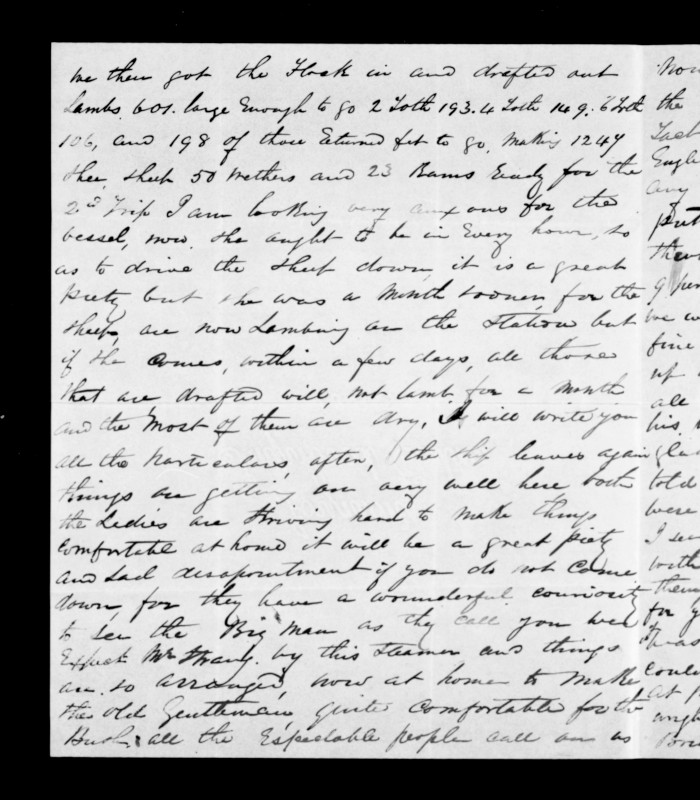 We then got the Flock in and drafted out
Lambs. 601. large Enough to go 2 Toth 193. 4 Toth 149. 6 Toth
106, and 198 of those Returned fit to go, Making 1247
Shee, sheep 50 Wethers and 23 Rams Ready for the
2nd Trip I am looking very anxous for the
vessel, now. she aught to be in Every hour, so
as to drive the sheep down, it is a great
piety but she was a Month sooner, for the
sheep, are now Lambing on the Station but
if she comes, within a few days, all those
that are drafted will, not lamb, for a month
and the Most of them are dry, I will write you
all the particulars, after, the ship leaves again
things are getting on very well here both
the Ledies are Striving hard to Make things
Comfortable at home it will be a great piety
and sad disapointment if you do not Come
down, for they have a wounderful couriosity
to see the Big Man as they call you wee
Expect Mr Strang. by this Steamer and things
are. so arranged, now at home to Make
the old Gentleman, quite Comfortable for the
Bush, all the Espectable people call on us
Now
the
Engl
any
put
9
we w
fine
up
all
his
told
were
I see
with
them
for y
was
could
at